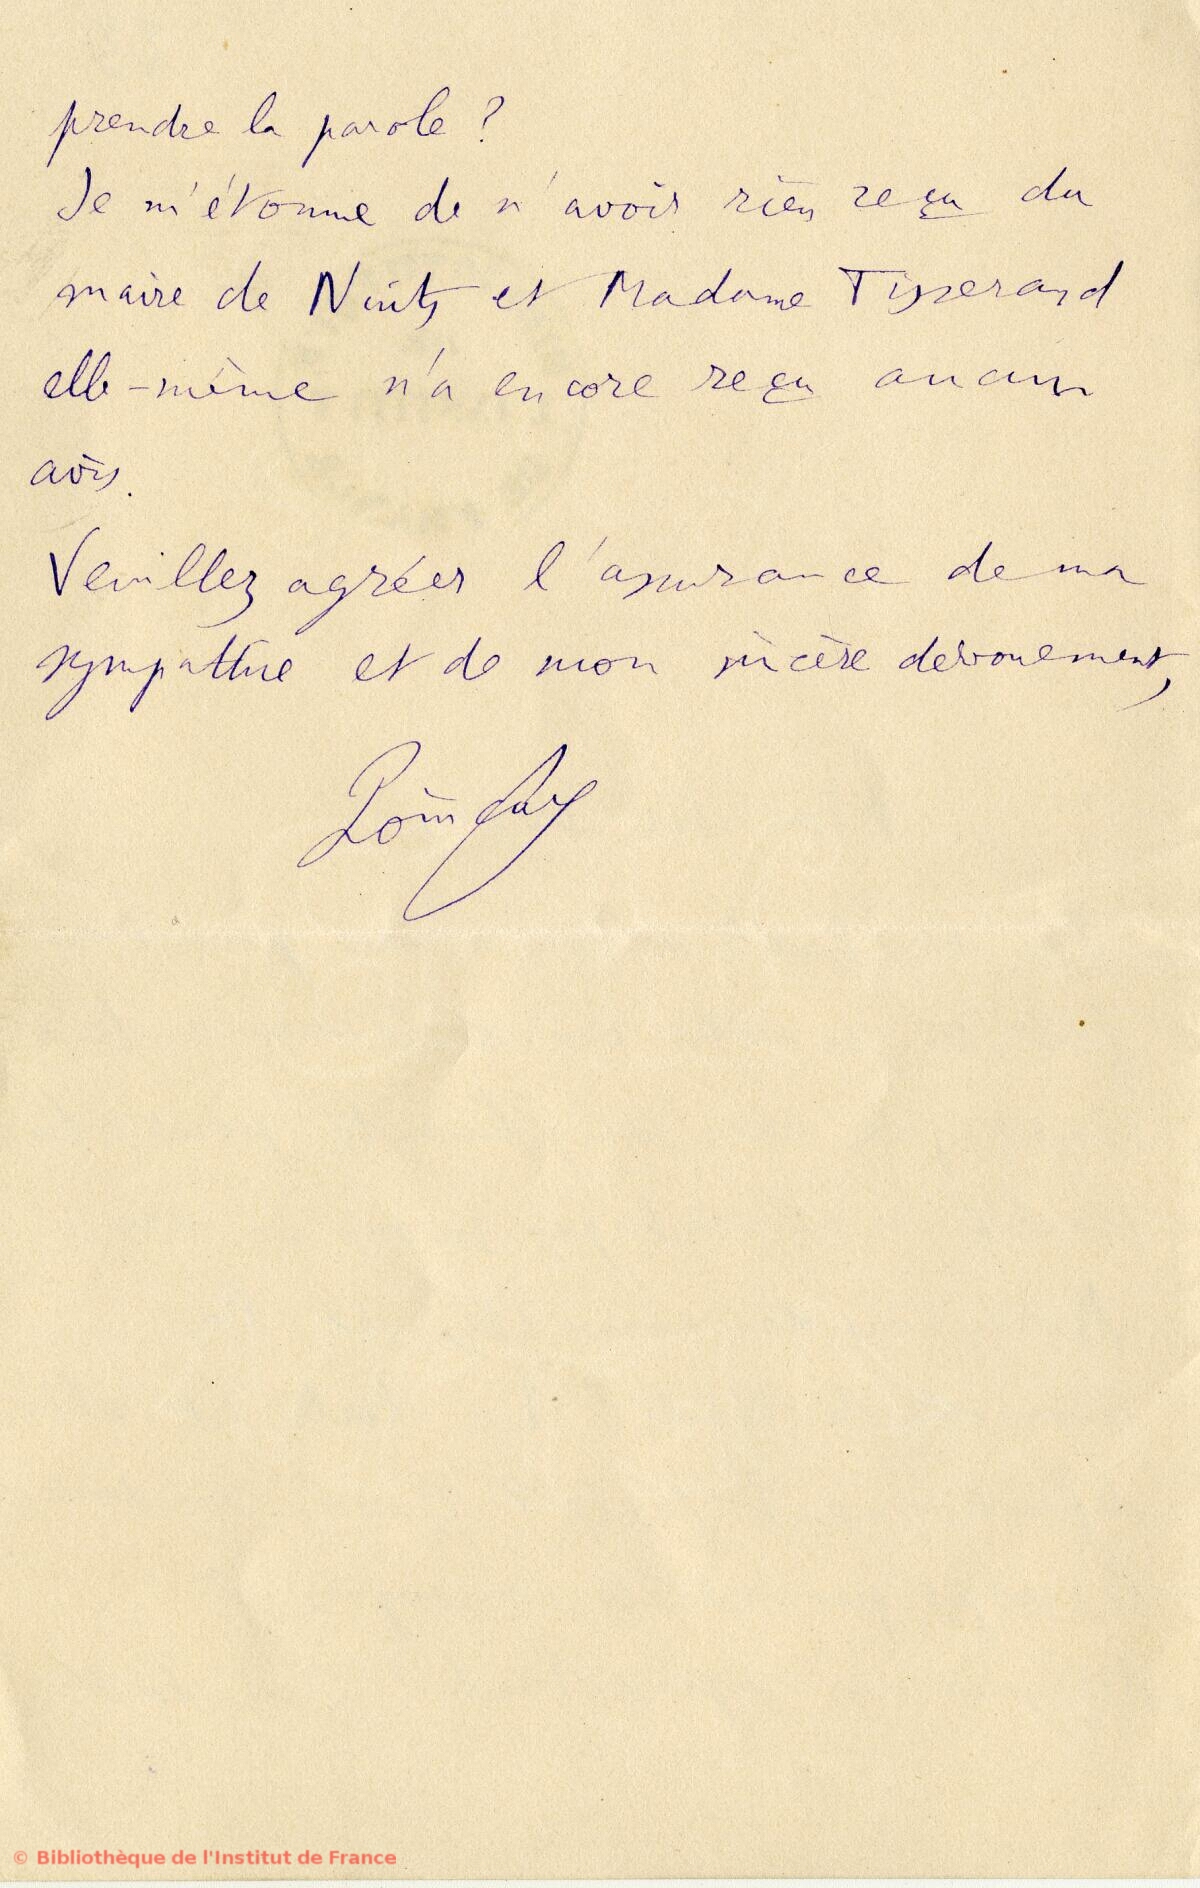 prendre la parole ?
Je m'étonne de n'avoir rien reçu du
maire de Nuits et Madame Tisserand
elle-même n'a encore reçu aucun
avis.
Veuillez agréer l'assurance de ma
sympathie et de mon sincère dévouement,
Poincaré
© Bibliothèque de l'Institut de France